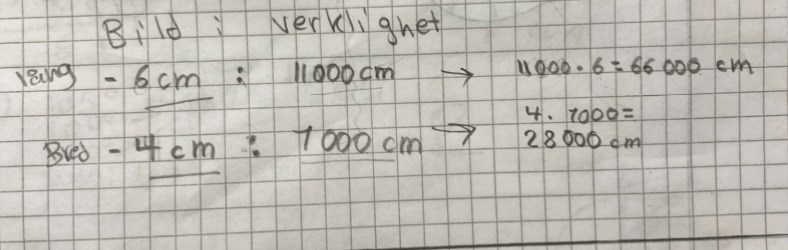 Bild : verklighet
lång - 6 cm : 11000 cm → 11000 · 6 = 66 000 cm
Bred - 4 cm : 7000 cm → 4 · 7000 =
28 000 cm